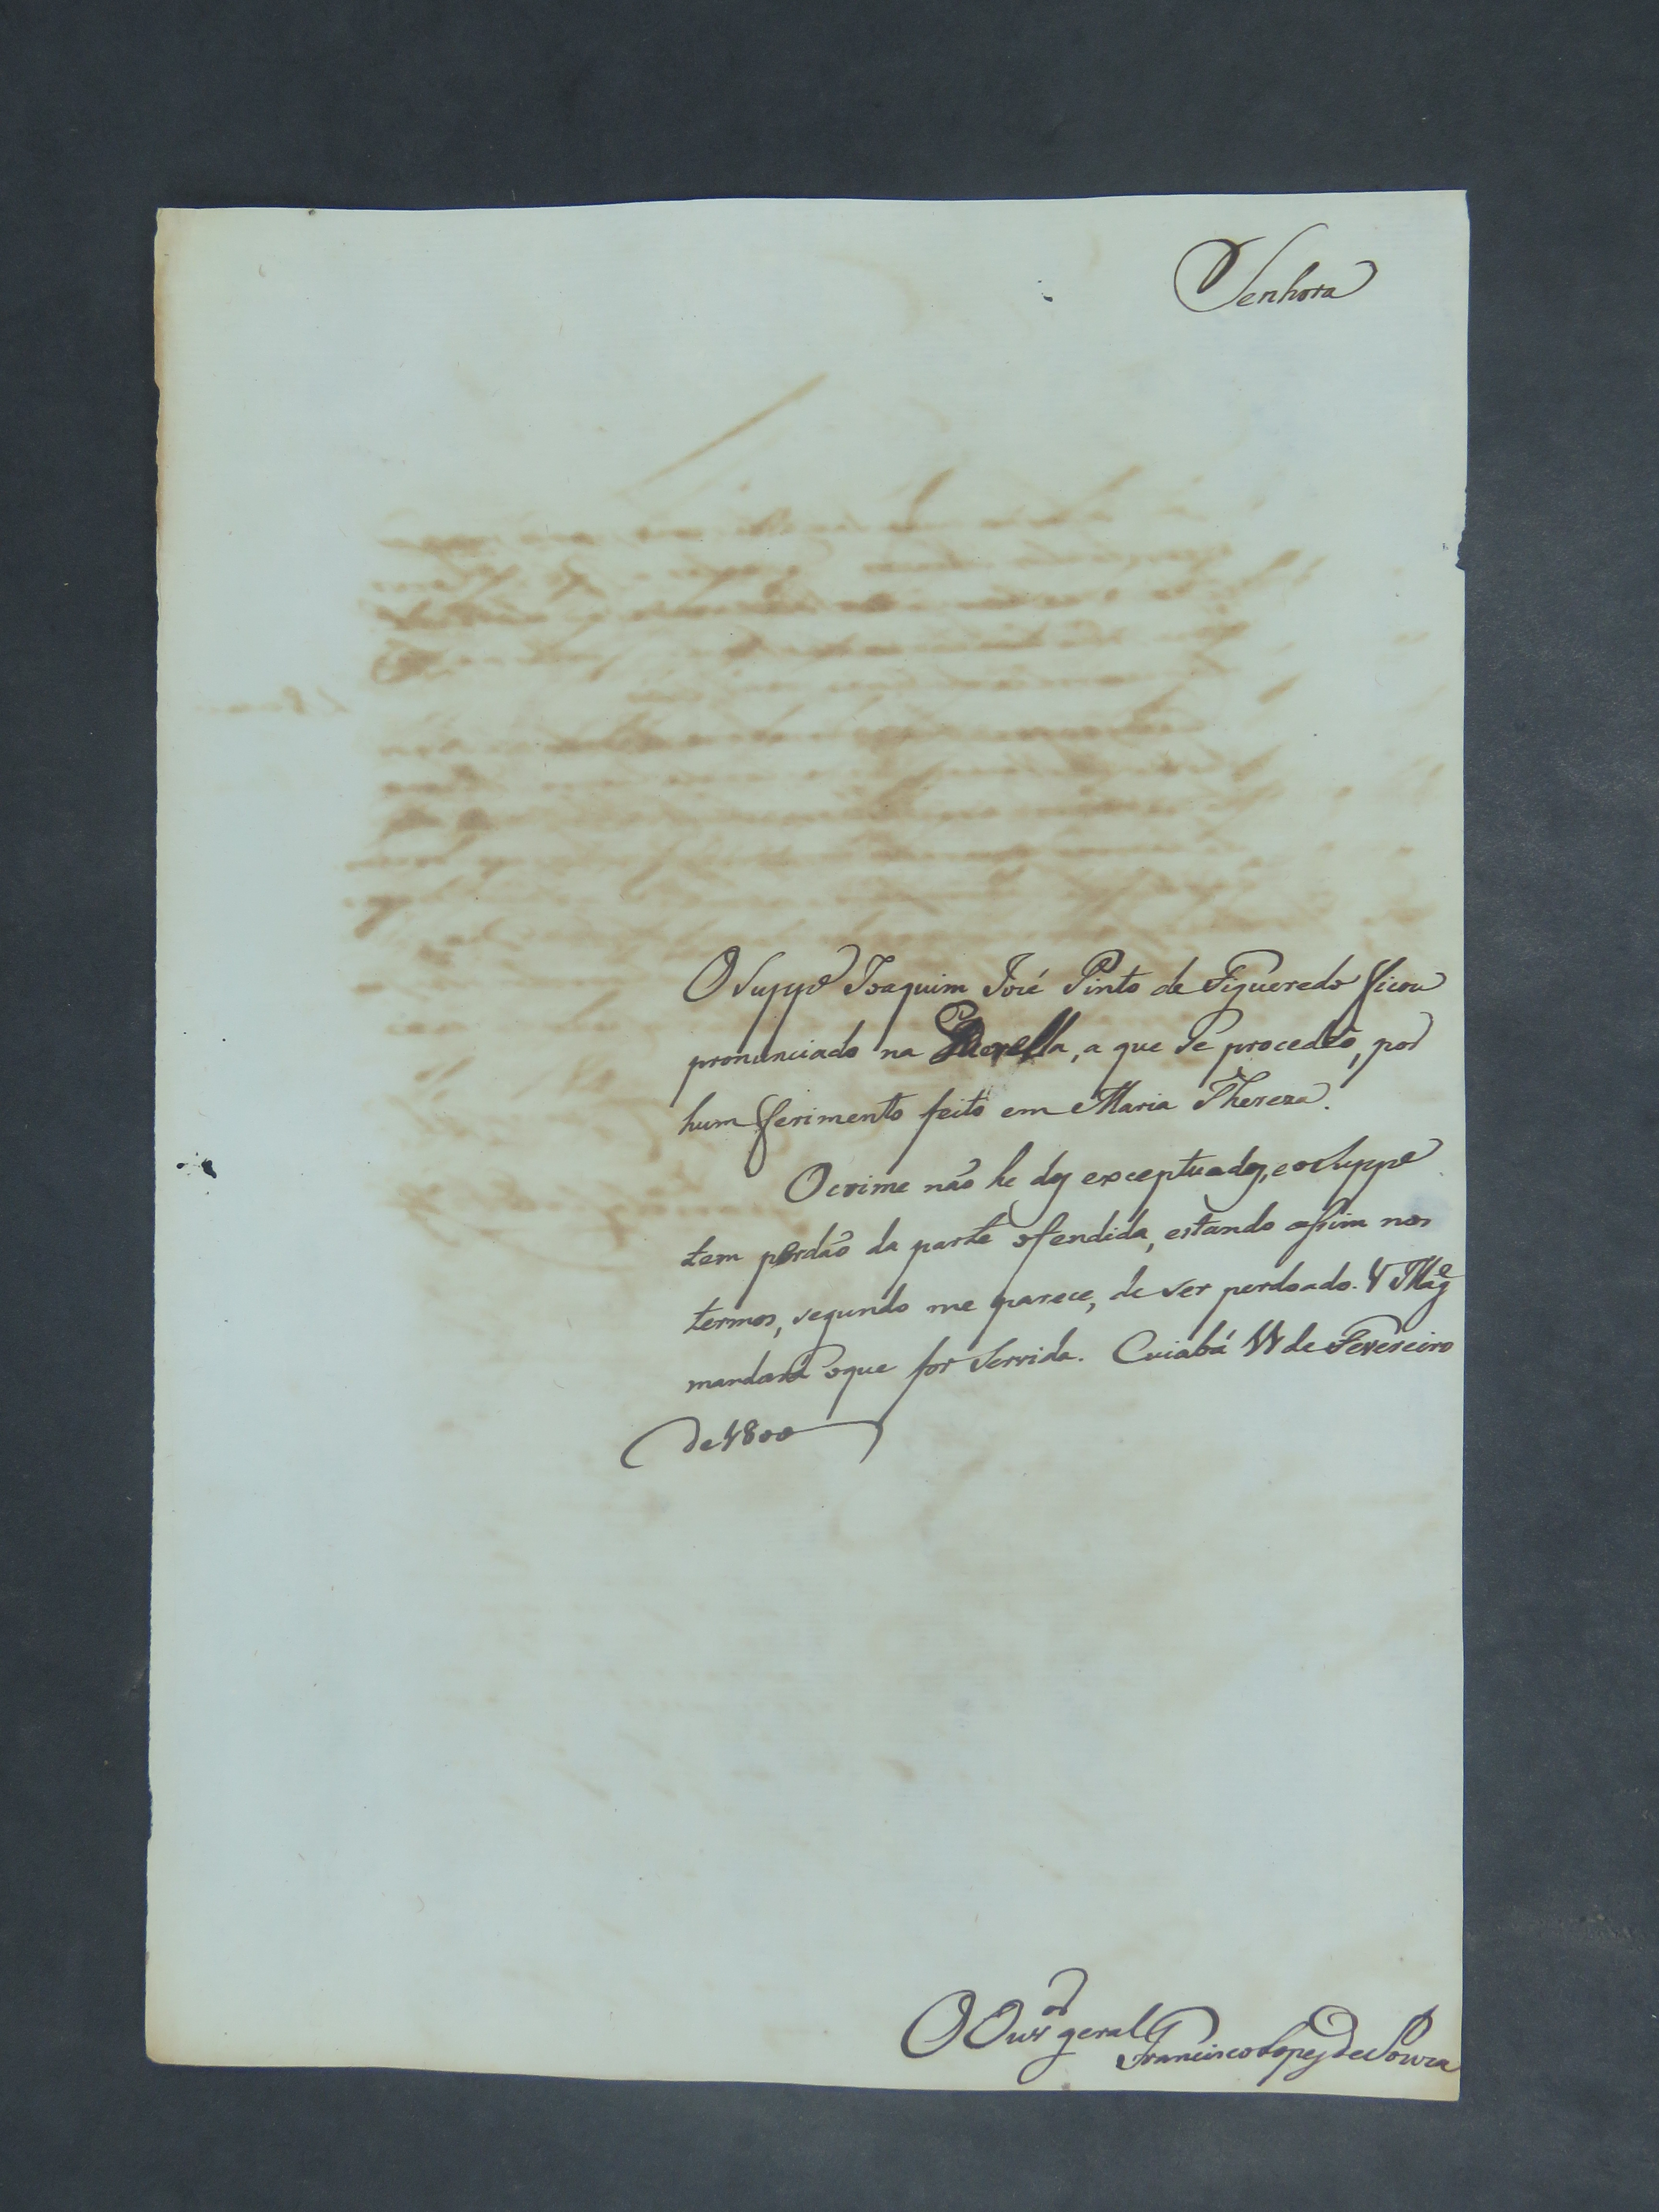 Senhora
O Supp.e Joaquim José Pinto de Figueredo ficou
pronunciado na Querella, a que se procedeo, por
hum ferimento feito em Maria Thereza.
O crime não he dos exceptuados, e o Supp.e
tem perdão da parte ofendida, estando assim nos
termos, segundo me parece, de ser perdoado. V Mag.e
mandará o que for servida. Cuiabá 11 de Fevereiro
de 1800
O Ouv.or geral
Francisco Lopes de Souza